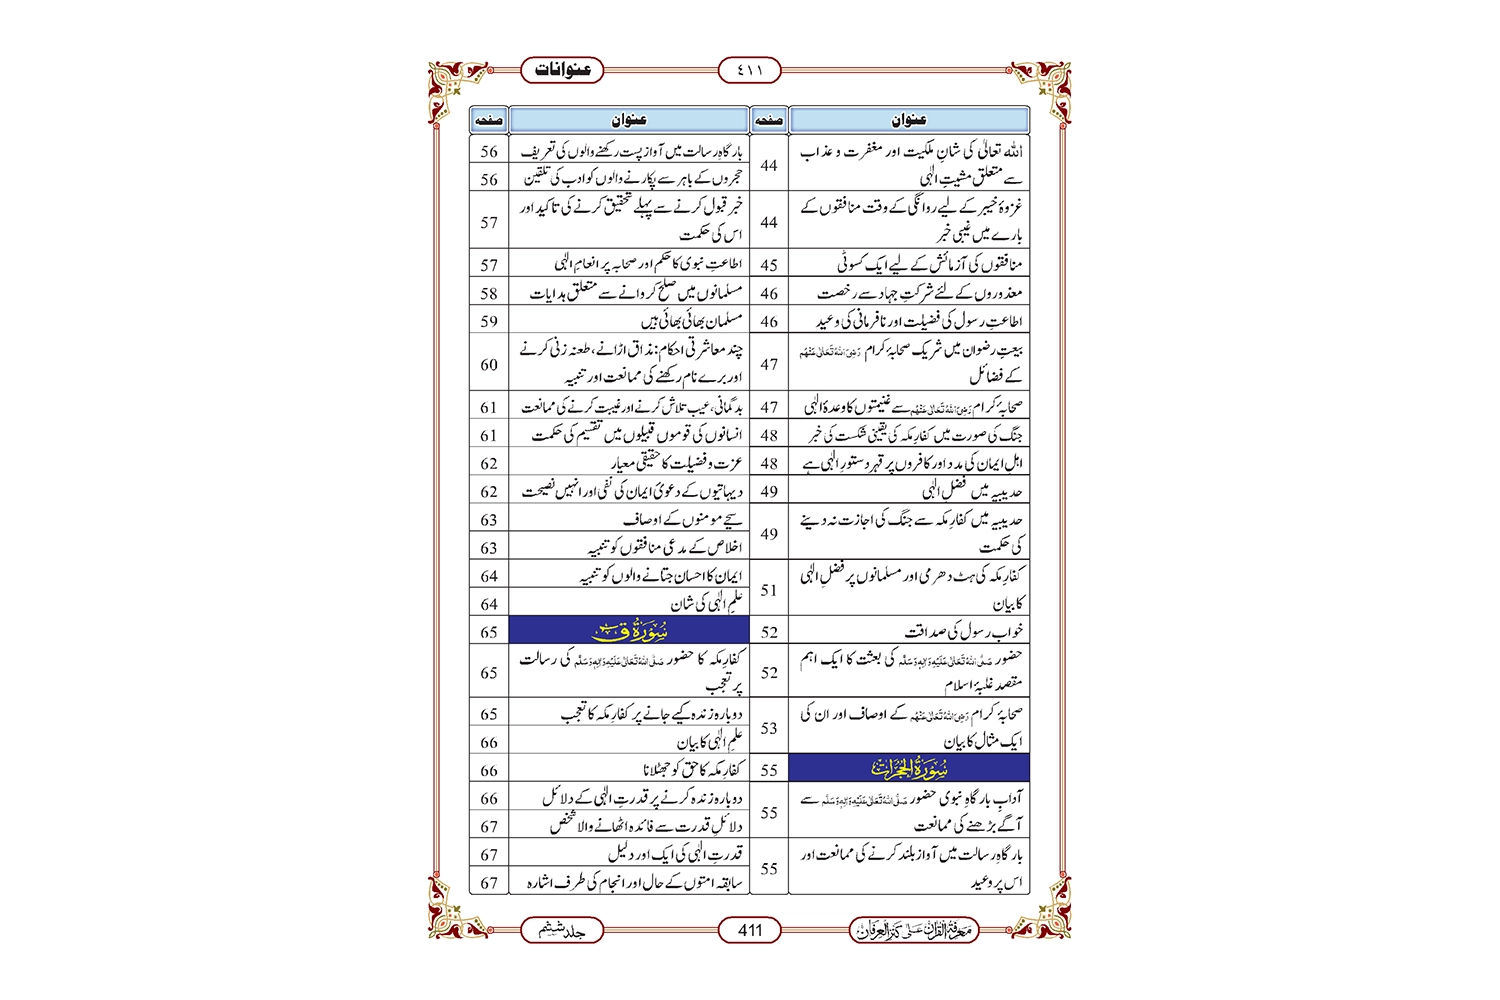 عنوانات
٤١١
عنوان
صفحہ
اللہ تعالیٰ کی شانِ ملکیت اور مغفرت و عذاب
سے متعلق مشیتِ الٰہی
44
غزوۂ خیبر کے لیے روانگی کے وقت منافقوں کے
بارے میں غیبی خبر
44
منافقوں کی آزمائش کے لیے ایک کسوٹی
45
معذوروں کے لئے شرکتِ جہاد سے رخصت
46
اطاعتِ رسول کی فضیلت اور نافرمانی کی وعید
46
بیعتِ رضوان میں شریک صحابۂ کرام رَضِیَ اللہُ تَعَالٰی عَنْہُم
کے فضائل
47
صحابۂ کرام رَضِیَ اللہُ تَعَالٰی عَنْہُم سے غنیمتوں کا وعدۂ الٰہی
47
جنگ کی صورت میں کفارِ مکہ کی یقینی شکست کی خبر
48
اہلِ ایمان کی مدد اور کافروں پر قہر دستورِ الٰہی ہے
48
حدیبیہ میں فضلِ الٰہی
49
حدیبیہ میں کفارِ مکہ سے جنگ کی اجازت نہ دینے
کی حکمت
49
کفارِ مکہ کی ہٹ دھرمی اور مسلمانوں پر فضلِ الٰہی
کا بیان
51
خوابِ رسول کی صداقت
52
حضور صَلَّی اللہُ تَعَالٰی عَلَیْہِ وَاٰلِہٖ وَسَلَّم کی بعثت کا ایک اہم
مقصد غلبۂ اسلام
52
صحابۂ کرام رَضِیَ اللہُ تَعَالٰی عَنْہُم کے اوصاف اور ان کی
ایک مثال کا بیان
53
سُوْرَۃُ الْحُجُرَات
55
آدابِ بارگاہِ نبوی حضور صَلَّی اللہُ تَعَالٰی عَلَیْہِ وَاٰلِہٖ وَسَلَّم سے
آگے بڑھنے کی ممانعت
55
بارگاہِ رسالت میں آواز بلند کرنے کی ممانعت اور
اس پر وعید
55
عنوان
صفحہ
بارگاہِ رسالت میں آواز پست رکھنے والوں کی تعریف
56
حجروں کے باہر سے پکارنے والوں کو ادب کی تلقین
56
خبر قبول کرنے سے پہلے تحقیق کرنے کی تاکید اور
اس کی حکمت
57
اطاعتِ نبوی کا حکم اور صحابہ پر انعامِ الٰہی
57
مسلمانوں میں صلح کروانے سے متعلق ہدایات
58
مسلمان بھائی بھائی ہیں
59
چند معاشرتی احکام: مذاق اڑانے، طعنہ زنی کرنے
اور برے نام رکھنے کی ممانعت اور تنبیہ
60
بدگمانی، عیب تلاش کرنے اور غیبت کرنے کی ممانعت
61
انسانوں کی قوموں قبیلوں میں تقسیم کی حکمت
61
عزت و فضیلت کا حقیقی معیار
62
دیہاتیوں کے دعویٔ ایمان کی نفی اور انہیں نصیحت
62
سچے مومنوں کے اوصاف
63
اخلاص کے مدعی منافقوں کو تنبیہ
63
ایمان کا احسان جتانے والوں کو تنبیہ
64
علمِ الٰہی کی شان
64
سُوْرَۃُ قٓ
65
کفارِ مکہ کا حضور صَلَّی اللہُ تَعَالٰی عَلَیْہِ وَاٰلِہٖ وَسَلَّم کی رسالت
پر تعجب
65
دوبارہ زندہ کیے جانے پر کفارِ مکہ کا تعجب
65
علمِ الٰہی کا بیان
66
کفارِ مکہ کا حق کو جھٹلانا
66
دوبارہ زندہ کرنے پر قدرتِ الٰہی کے دلائل
66
دلائلِ قدرت سے فائدہ اٹھانے والا شخص
67
قدرتِ الٰہی کی ایک اور دلیل
67
سابقہ امتوں کے حال اور انجام کی طرف اشارہ
67
مَعْرِفَۃُ الْقُرْاٰن عَلٰی کَنْزُالْعِرْفَان
411
جلد ششم